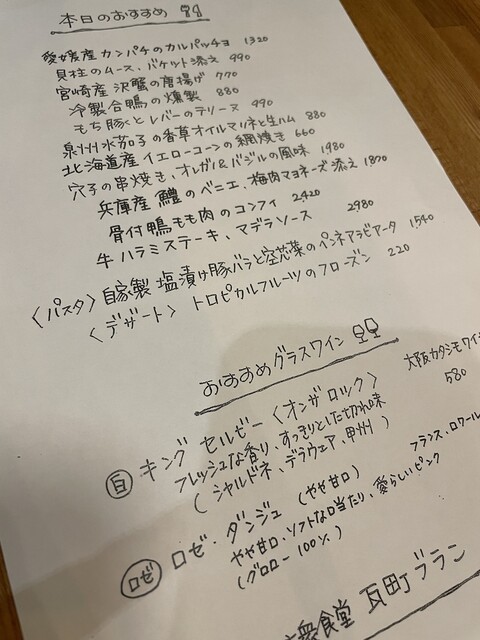 本日のおすすめ
愛媛産 カンパチのカルパッチョ 1320
貝柱のムース、バケット添え 990
宮崎産 沢蟹の唐揚げ 770
冷製合鴨の燻製 880
もち豚くとレバーのテリーヌ 990
泉州水茄子の香草オイルマリネと生ハム 880
北海道産 イエローコーンの網焼き 660
穴子の串焼き、オレガノ&バジルの風味 1980
兵庫産 鱧のベニエ、梅肉マヨネーズ添え 1870
骨付鴨もも肉のコンフィ 2,420
牛ハラミステーキ、マデラソース 2980
〈パスタ〉自家製 塩漬け豚バラと空芯菜のペンネアラビアータ 1540
〈デザート〉 トロピカルフルーツのフローズン 220
おすすめグラスワイン
白 キング セルビー〈オンザロック〉 大阪カタシモワイ
フレッシュな香り、すっきりとした切れ味 580
(シャルドネ、デラウェア、甲州)
ロゼ ロゼ・ダンジュ (やや甘口) フランス・ロワール
やや甘口、ソフトな口当たり、愛らしいピンク
(グロロー 100%)
衆食堂 瓦町ブラン